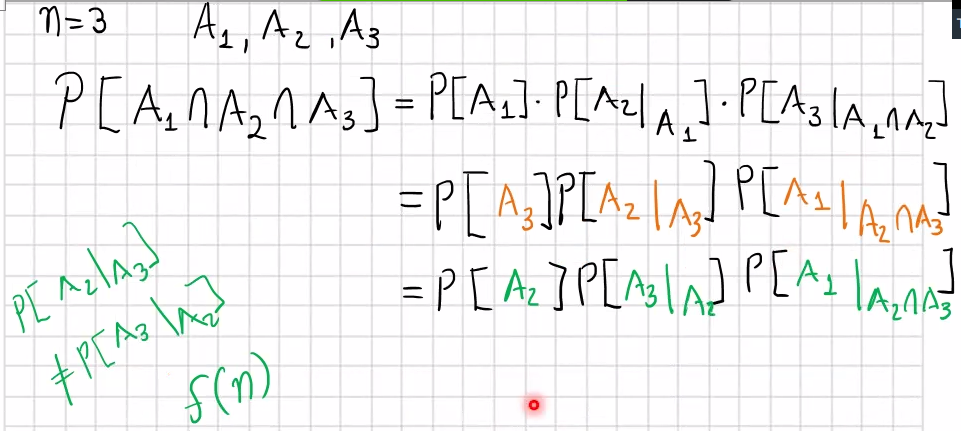 n=3 A₁, A₂, A₃
P[A₁∩A₂∩A₃] = P[A₁]·P[A₂|A₁]·P[A₃|A₁∩A₂]
=P[A₃]P[A₂|A₃] P[A₁|A₂∩A₃]
=P[A₂]P[A₃|A₂] P[A₁|A₂∩A₃]
P[A₂|A₃]
≠P[A₃|A₂]
f(n)